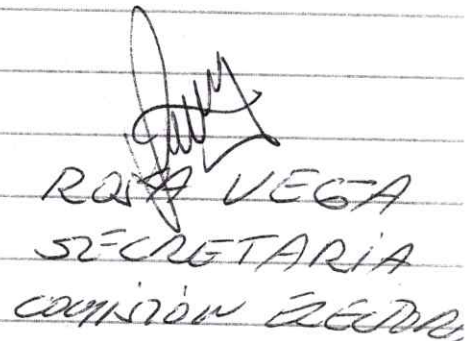 ROSA VEGA
SECRETARIA
COMISIÓN ELECTORAL